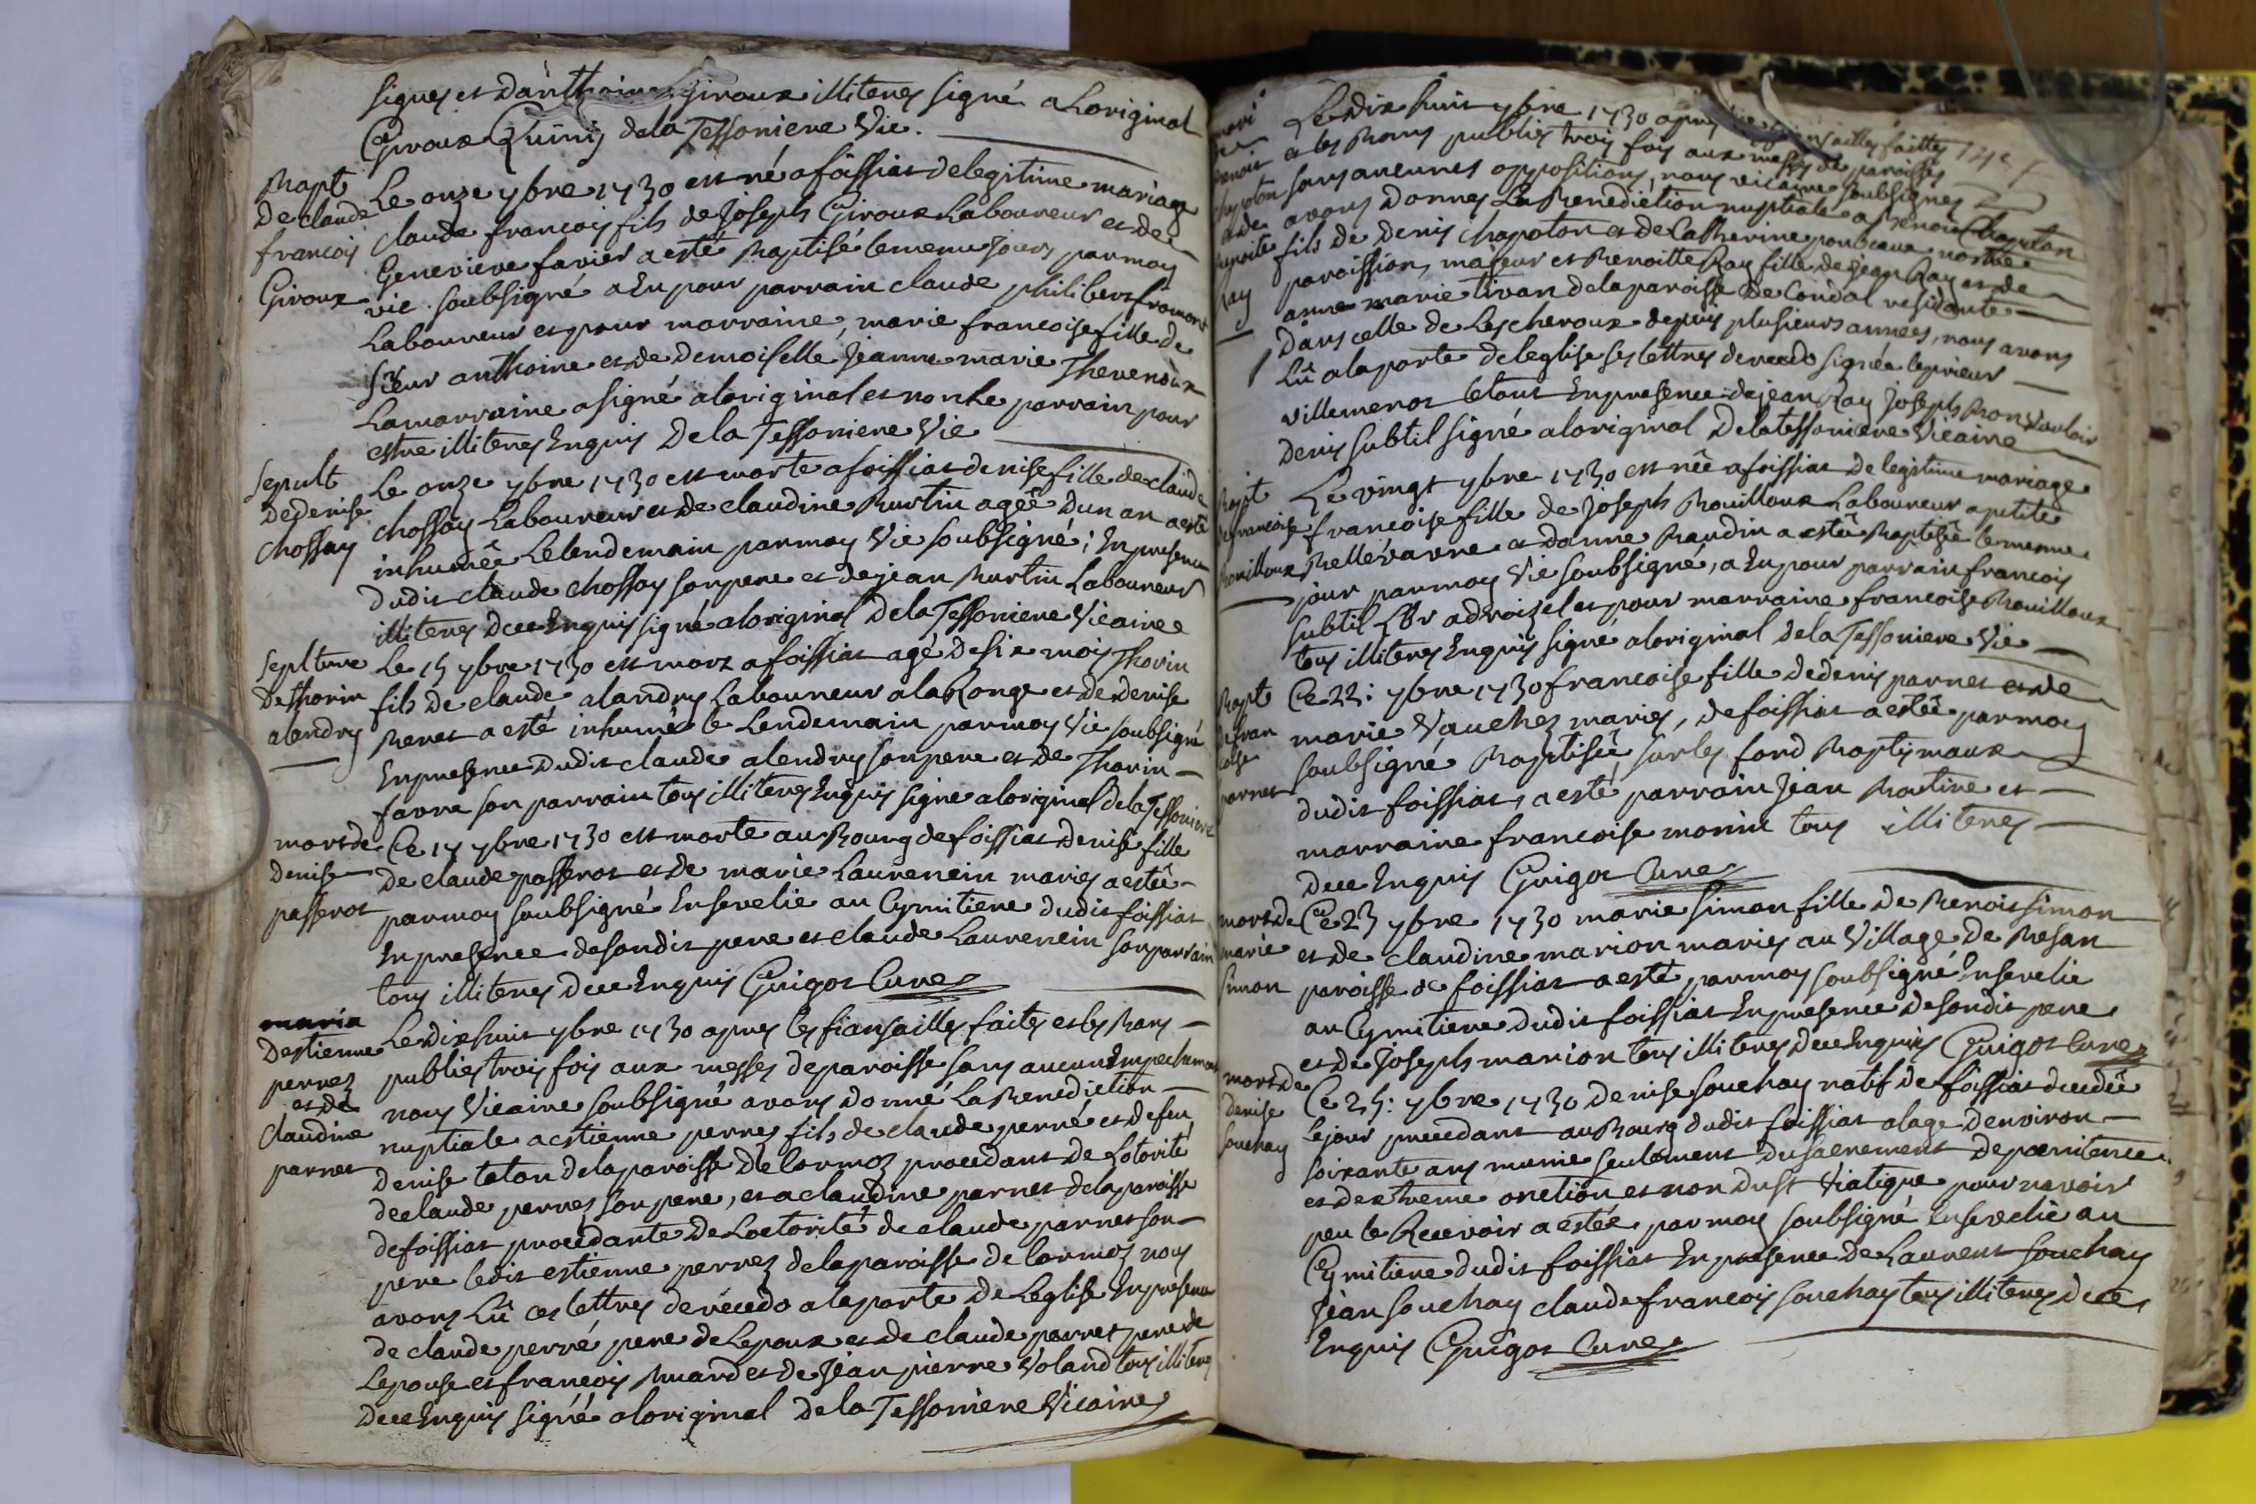 signes et danthoine Giroux illiteres signé aLoriginal
Giroux de la Tessoniere Vic.
Bapt
De claude
francois
Giroux
Le onze 7bre 1730 est né a foissiat de legitime mariage
claude francois fils de Joseph Giroux Laboureur et de
Genevieve favier a esté Baptisé le meme Jours par moy
vic. soubsigné a Eu pour parrain claude philibert fromont
Laboureur et pour marraine, marie francoise fille de
Sieur anthoine et de demoiselle Jeanne marie Thevenoux
La marraine a signé a loriginal et non le parrain pour
estre illiteres Enquis De la Tessoniere Vic
Sepult
De denise
chossay
Le onze 7bre 1730 est morte a foissiat denise fille de claude
chossay Laboureur et de claudine Burtin agée dun an a esté
inhumée Le lendemain par moy Vic soubsigné; En presence
dudit claude chossay son pere et de jean Burtin Laboureur
illiteres dece Enquis signé aloriginal De la Tessoniere Vicaire
Seplture
de Thorin
alendry
Le 15 7bre 1730 est mort a foissiat agé de six mois Thorin
fils de claude alandry Laboureur ala Ronge et de denise
Benet a esté inhumé le Lendemain par moy Vic soubsigné
En presence Dudit claude alendry son pere et de Thorin
favre son parrain tous illiteres Enquis signé aloriginal De la Tessoniere
mort de
denise
passerot
Ce 17 7bre 1730 est morte au Bourg de foissiat denise fille
de claude passerot et de marie Laurencin maries a estée
par moy soubsigné Ensevelie au Cymitiere dudit foissiat
En presence de sondit pere et claude Laurencin son parrain
tous illiteres dece Enquis Guigot Cure
maria
Destienne
perret
et de
claudine
parnet
Le dix huit 7bre 1730 apres les fiansailles faites et les Bans
publies trois fois aux messes de paroisse sans aucun Empechement
nous Vicaire soubsigné avons donné La Benediction
nuptiale a estienne perret fils de claude perré et de feu
denise talon de la paroisse De Cormoz procedant de Lotorité
de claude perret son pere, et a claudine parnet de la paroisse
de foissiat procédante de Loctorité de claude parnet son
pere ledit estienne perret de la paroisse de Cormoz nous
avons Lû ces lettres de récedo a la porte de Leglise En presence
de claude perré pere de Lepoux et de claude parnet pere de
Lepouse et francois Muard et de Jean pierre Voland tous illiteres
Dece Enquis signé aloriginal De la Tessoniere Vicaire
mari
Benoit
Chapoton
et de
Benoite
Ray
Le dix huit 7bre 1730 apres les fiansailles faittes
et les Bans publies trois fois aux messes de paroisses
sans aucunes oppositions, nous vicaire soubsignes
avons Donnes La Benediction nuptiale a Benoit Chapoton
fils de denis chapoton et de Catherine ponceave nostre
paroissien, majeur et Benoitte Ray fille de jean Ray et de
anne marie tivan de la paroisse de Condal residante
dans celle de Lescheroux depuis plusieurs annees, nous avons
Lû a la porte de leglise ses lettres de recedo signée le prieur
villemenot le tout En presence de jean Ray Joseph Bon Vouloir
denis subtil signé a loriginal De la tessoniere Vicaire
Bapt
de francoise
Rouilloux
Le vingt 7bre 1730 est née a foissiat de legitime mariage
francoise fille de Joseph Bouilloux Laboureur a petite
Bellevavre et danne Baudin a estée Baptisée le meme
jour par moy Vic soubsigné, a Eu pour parrain francois
subtil et pour marraine francoise Bouilloux
tous illiteres Enquis signé aloriginal de la Tessoniere Vic
Bapt
de fran
coise
parnet
Ce 22: 7bre 1730 francoise fille de denis parnet et de
marie Vauchez maries, de foissiat a estée par moy
soubsigné Baptisée, sur les fond Baptismaux
dudit foissiat, a esté parrain Jean Boutine et
marraine francoise morin tous illiteres
dece Enquis Guigot Cure
mort de
marie
Simon
Ce 23 7bre 1730 marie simon fille de Benoit simon
et de claudine marion maries au Village de Besan
paroisse de foissiat a esté par moy soubsigné Ensevelie
au Cymitiere dudit foissiat En presence de sondit pere
et de Joseph marion tous illiteres dece Enquis Guigot Cure
mort de
denise
souchay
Ce 25: 7bre 1730 denise souchay natif de foissiat decedée
le jour precedant au Bourg dudit foissiat alage denviron
soixante ans munie seulement du sacrement de poenitence
et dextreme onction et non du St Viatique pour navoir
peu le Recevoir a estée par moy soubsigné Ensevelie au
Cymitiere dudit foissiat En presence de Laurent souchay
Jean souchay claude francois souchay tous illiteres dece
Enquis Guigot Cure